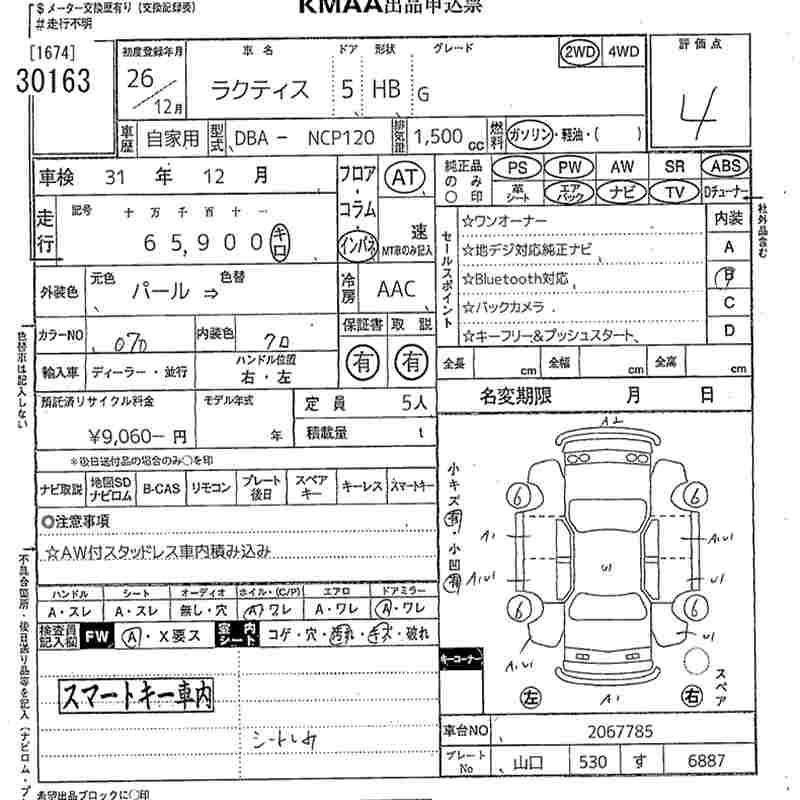 $ メーター交換歴有り (交換記録表)
# 走行不明
KMAA出品申込票
[1674]
30163
初度登録年月 車名 ドア 形状 グレード 2WD 4WD 評価点
26/12月 ラクティス 5 HB G 4
車歴 自家用 型式 DBA - NCP120 排気量 1,500 cc 燃料 ガソリン・軽油・( )
車検 31 年 12 月
フロア・コラム・インパネ AT 速 MT車のみ記入
純正品のみ○印 PS PW AW SR ABS
革シート エアバック ナビ TV Dチューナー
社外品含む
走行 記号 十 万 千 百 十 一
65,900 キロ
セールスポイント
☆ワンオーナー
☆地デジ対応純正ナビ
☆Bluetooth対応
☆バックカメラ
☆キーフリー&プッシュスタート
内装
A
B
C
D
外装色 元色 パール ⇒ 色替
冷房 AAC
カラーNO 070 内装色 クロ
保証書 取説
有 有
輸入車 ディーラー・並行 ハンドル位置 右・左
全長 cm 全幅 cm 全高 cm
色替車は記入しない
預託済リサイクル料金 モデル年式 定員 5人
¥9,060- 円 年 積載量 t
名変期限 月 日
*後日送付品の場合のみ○を印
ナビ取説 地図SDナビロム B-CAS リモコン プレート後日 スペアキー キーレス スマートキー
◎注意事項
☆AW付スタッドレス車内積み込み
小キズ有・小凹有
A2
6 6
A1 A,U1
U1
A,U1 U1
6 6
A,U1 U1
A1
左 右 スペア
キーコーナー
不具合箇所・後日送り品等を記入 (ナビロム・プ
ハンドル シート オーディオ ホイル・(C/P) エアロ ドアミラー
A・スレ A・スレ 無し・穴 A・ワレ A・ワレ A・ワレ
検査員記入欄 FW A・X要ス 室内シート コゲ・穴・汚れ・キズ・破れ
スマートキー車内
車台NO 2067785
プレートNo 山口 530 す 6887
希望出品ブロックに○印